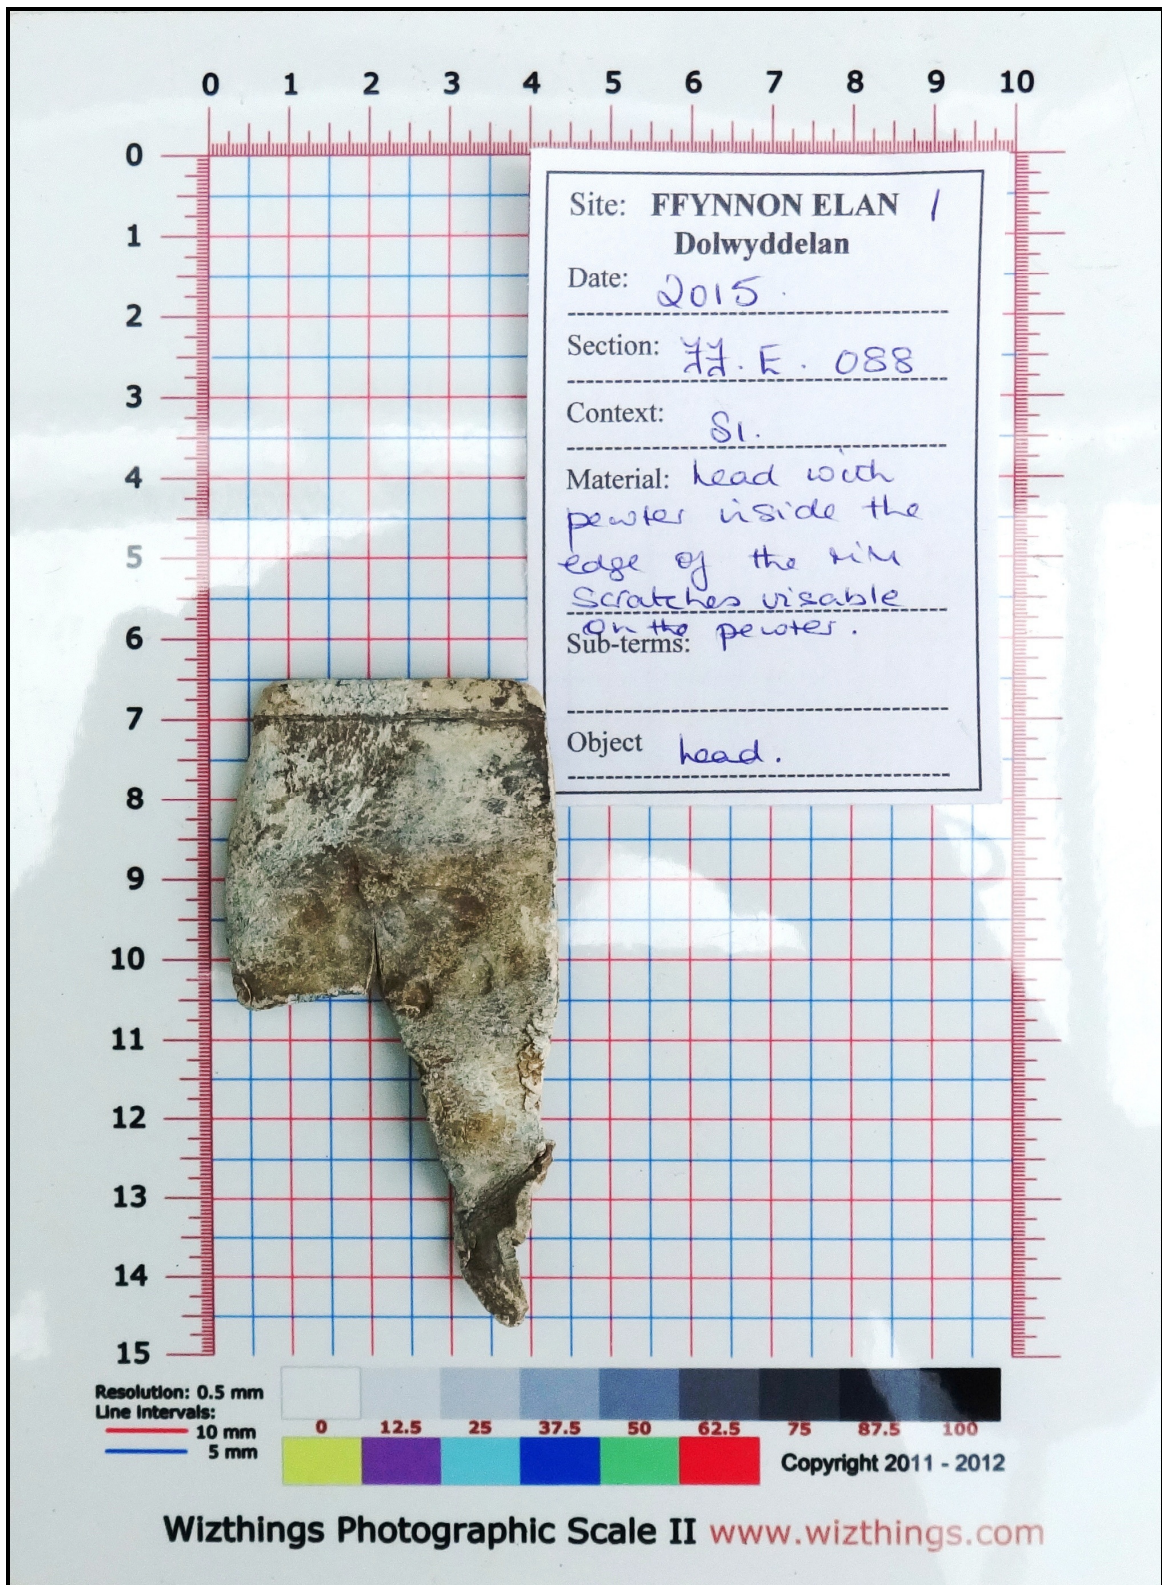 0 1 2 3 4 5 6 7 8 9 10
0
1
2
3
4
5
6
7
8
9
10
11
12
13
14
15
Site: FFYNNON ELAN 1
Dolwyddelan
Date: 2015.
Section: FF. E. 088
Context: S1.
Material: Lead with
pewter inside the
edge of the rim
Scratches visable
on the pewter.
Sub-terms:
Object Lead.
Resolution: 0.5 mm
Line Intervals:
10 mm
5 mm
0 12.5 25 37.5 50 62.5 75 87.5 100
Copyright 2011 - 2012
Wizthings Photographic Scale II www.wizthings.com